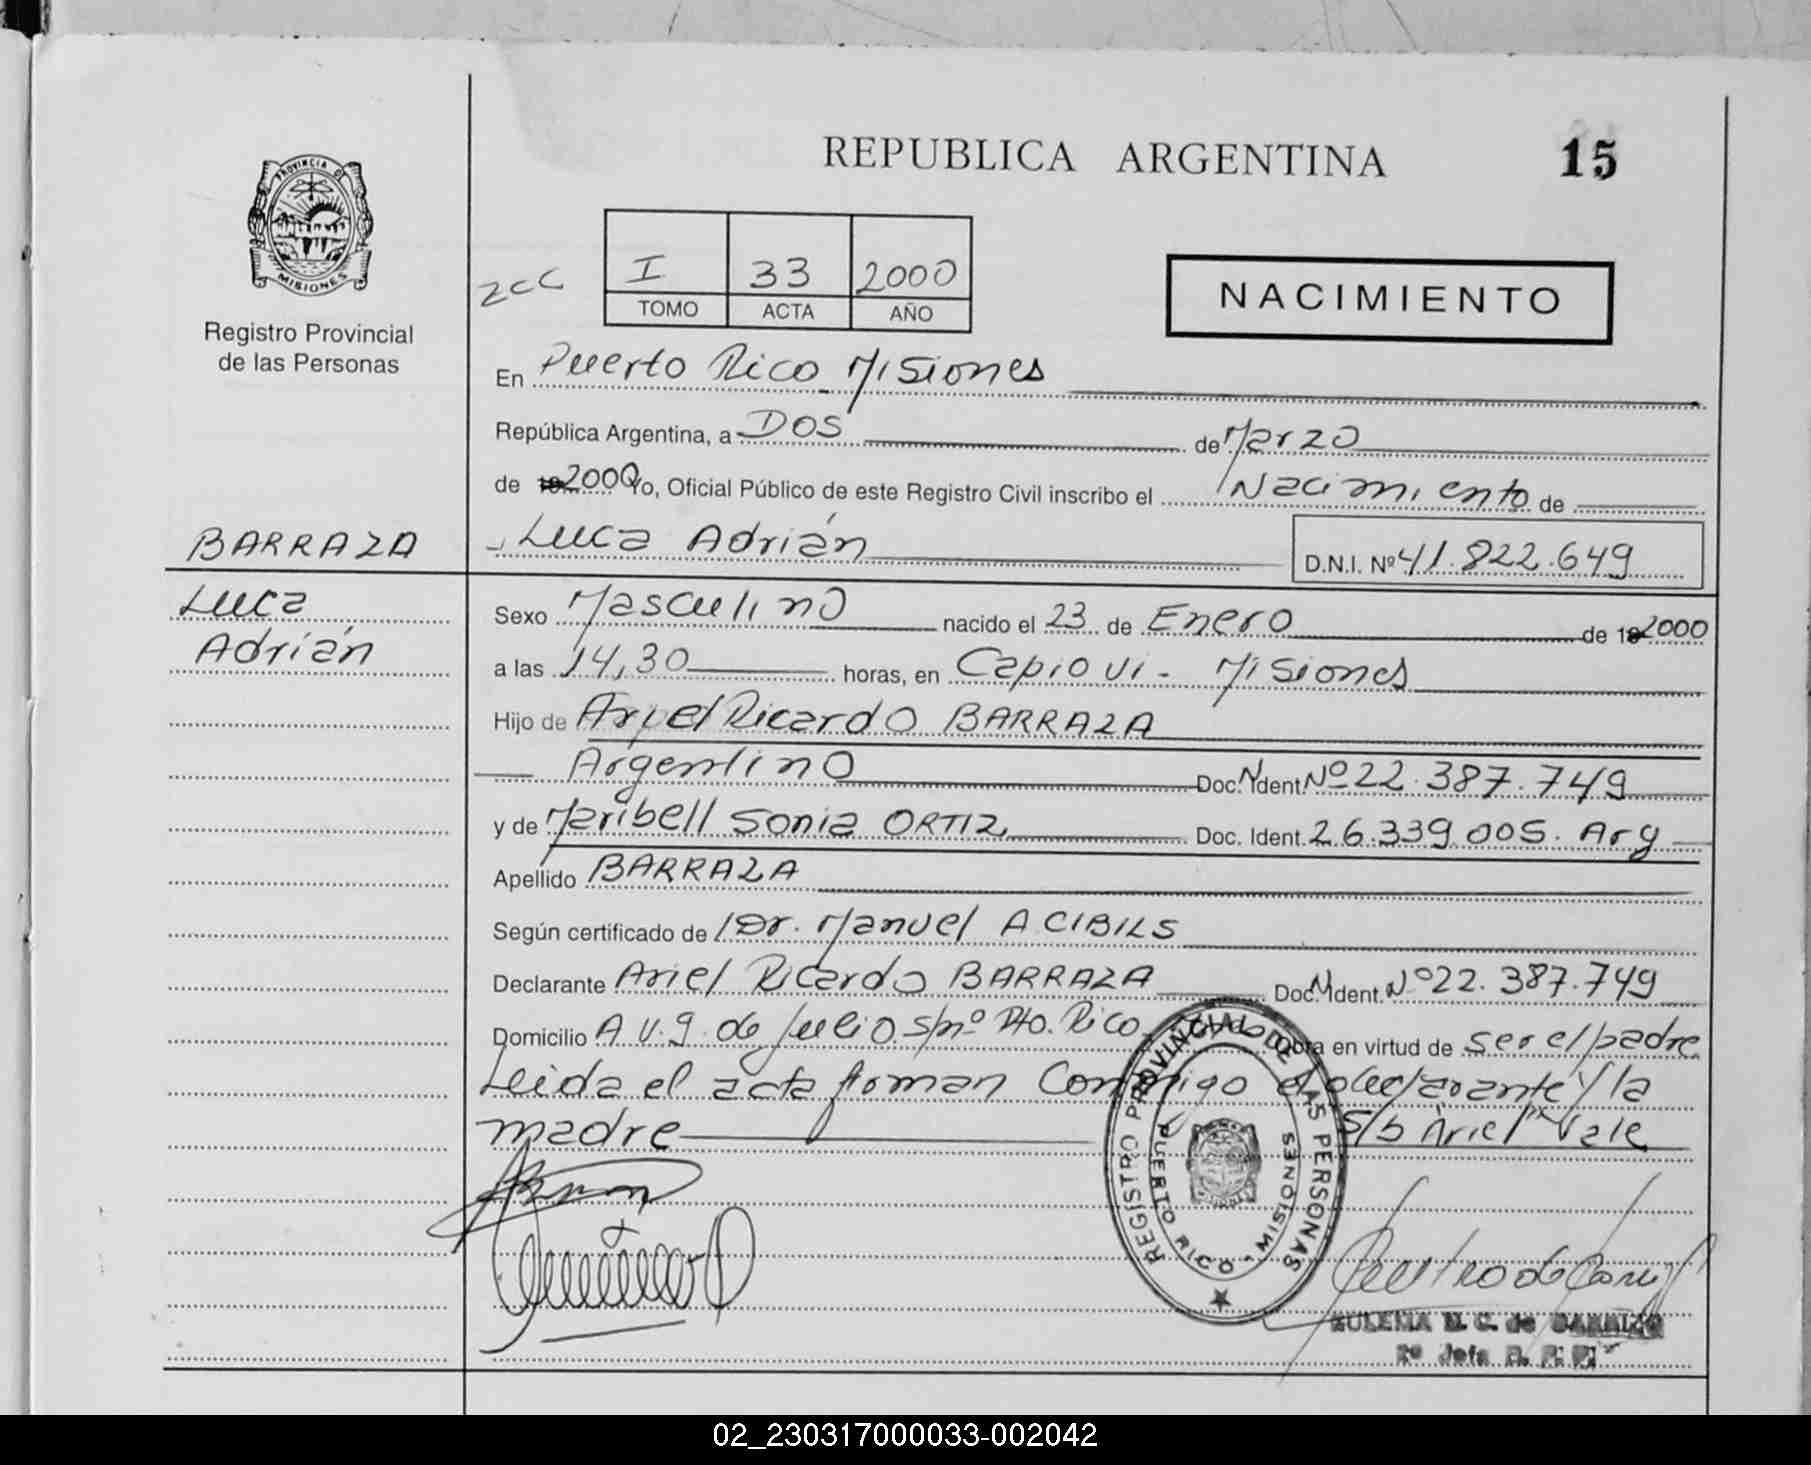 REPUBLICA ARGENTINA
15
PROVINCIA DE
MISIONES
Registro Provincial
de las Personas
I 33 2000
TOMO ACTA AÑO
NACIMIENTO
En Puerto Rico Misiones
República Argentina, a DOS de Marzo
de 2000 Yo, Oficial Público de este Registro Civil inscribo el Nacimiento de
BARRAZA
Luca Adrián
D.N.I. Nº 41.822.649
Luca
Adrián
Sexo Masculino nacido el 23 de Enero de 2000
a las 14,30 horas, en Capioví - Misiones
Hijo de Ariel Ricardo BARRAZA
Argentino Doc. N Ident. Nº 22.387.749
y de Maribell Sonia ORTIZ Doc. Ident. 26.339.005. Arg
Apellido BARRAZA
Según certificado de Dr. Manuel A CIBILS
Declarante Ariel Ricardo BARRAZA Doc. N Ident. Nº 22.387.749
Domicilio AV. 9 de Julio s/nº Pto. Rico Obra en virtud de ser el padre
Leida el acta firman Conmigo el declarante y la
madre S/b Ariel "Vale
REGISTRO PROVINCIAL DE LAS PERSONAS
PUERTO RICO - MISIONES
ZULEMA D. C. de
2º Jefa R. P. P.
02_230317000033-002042